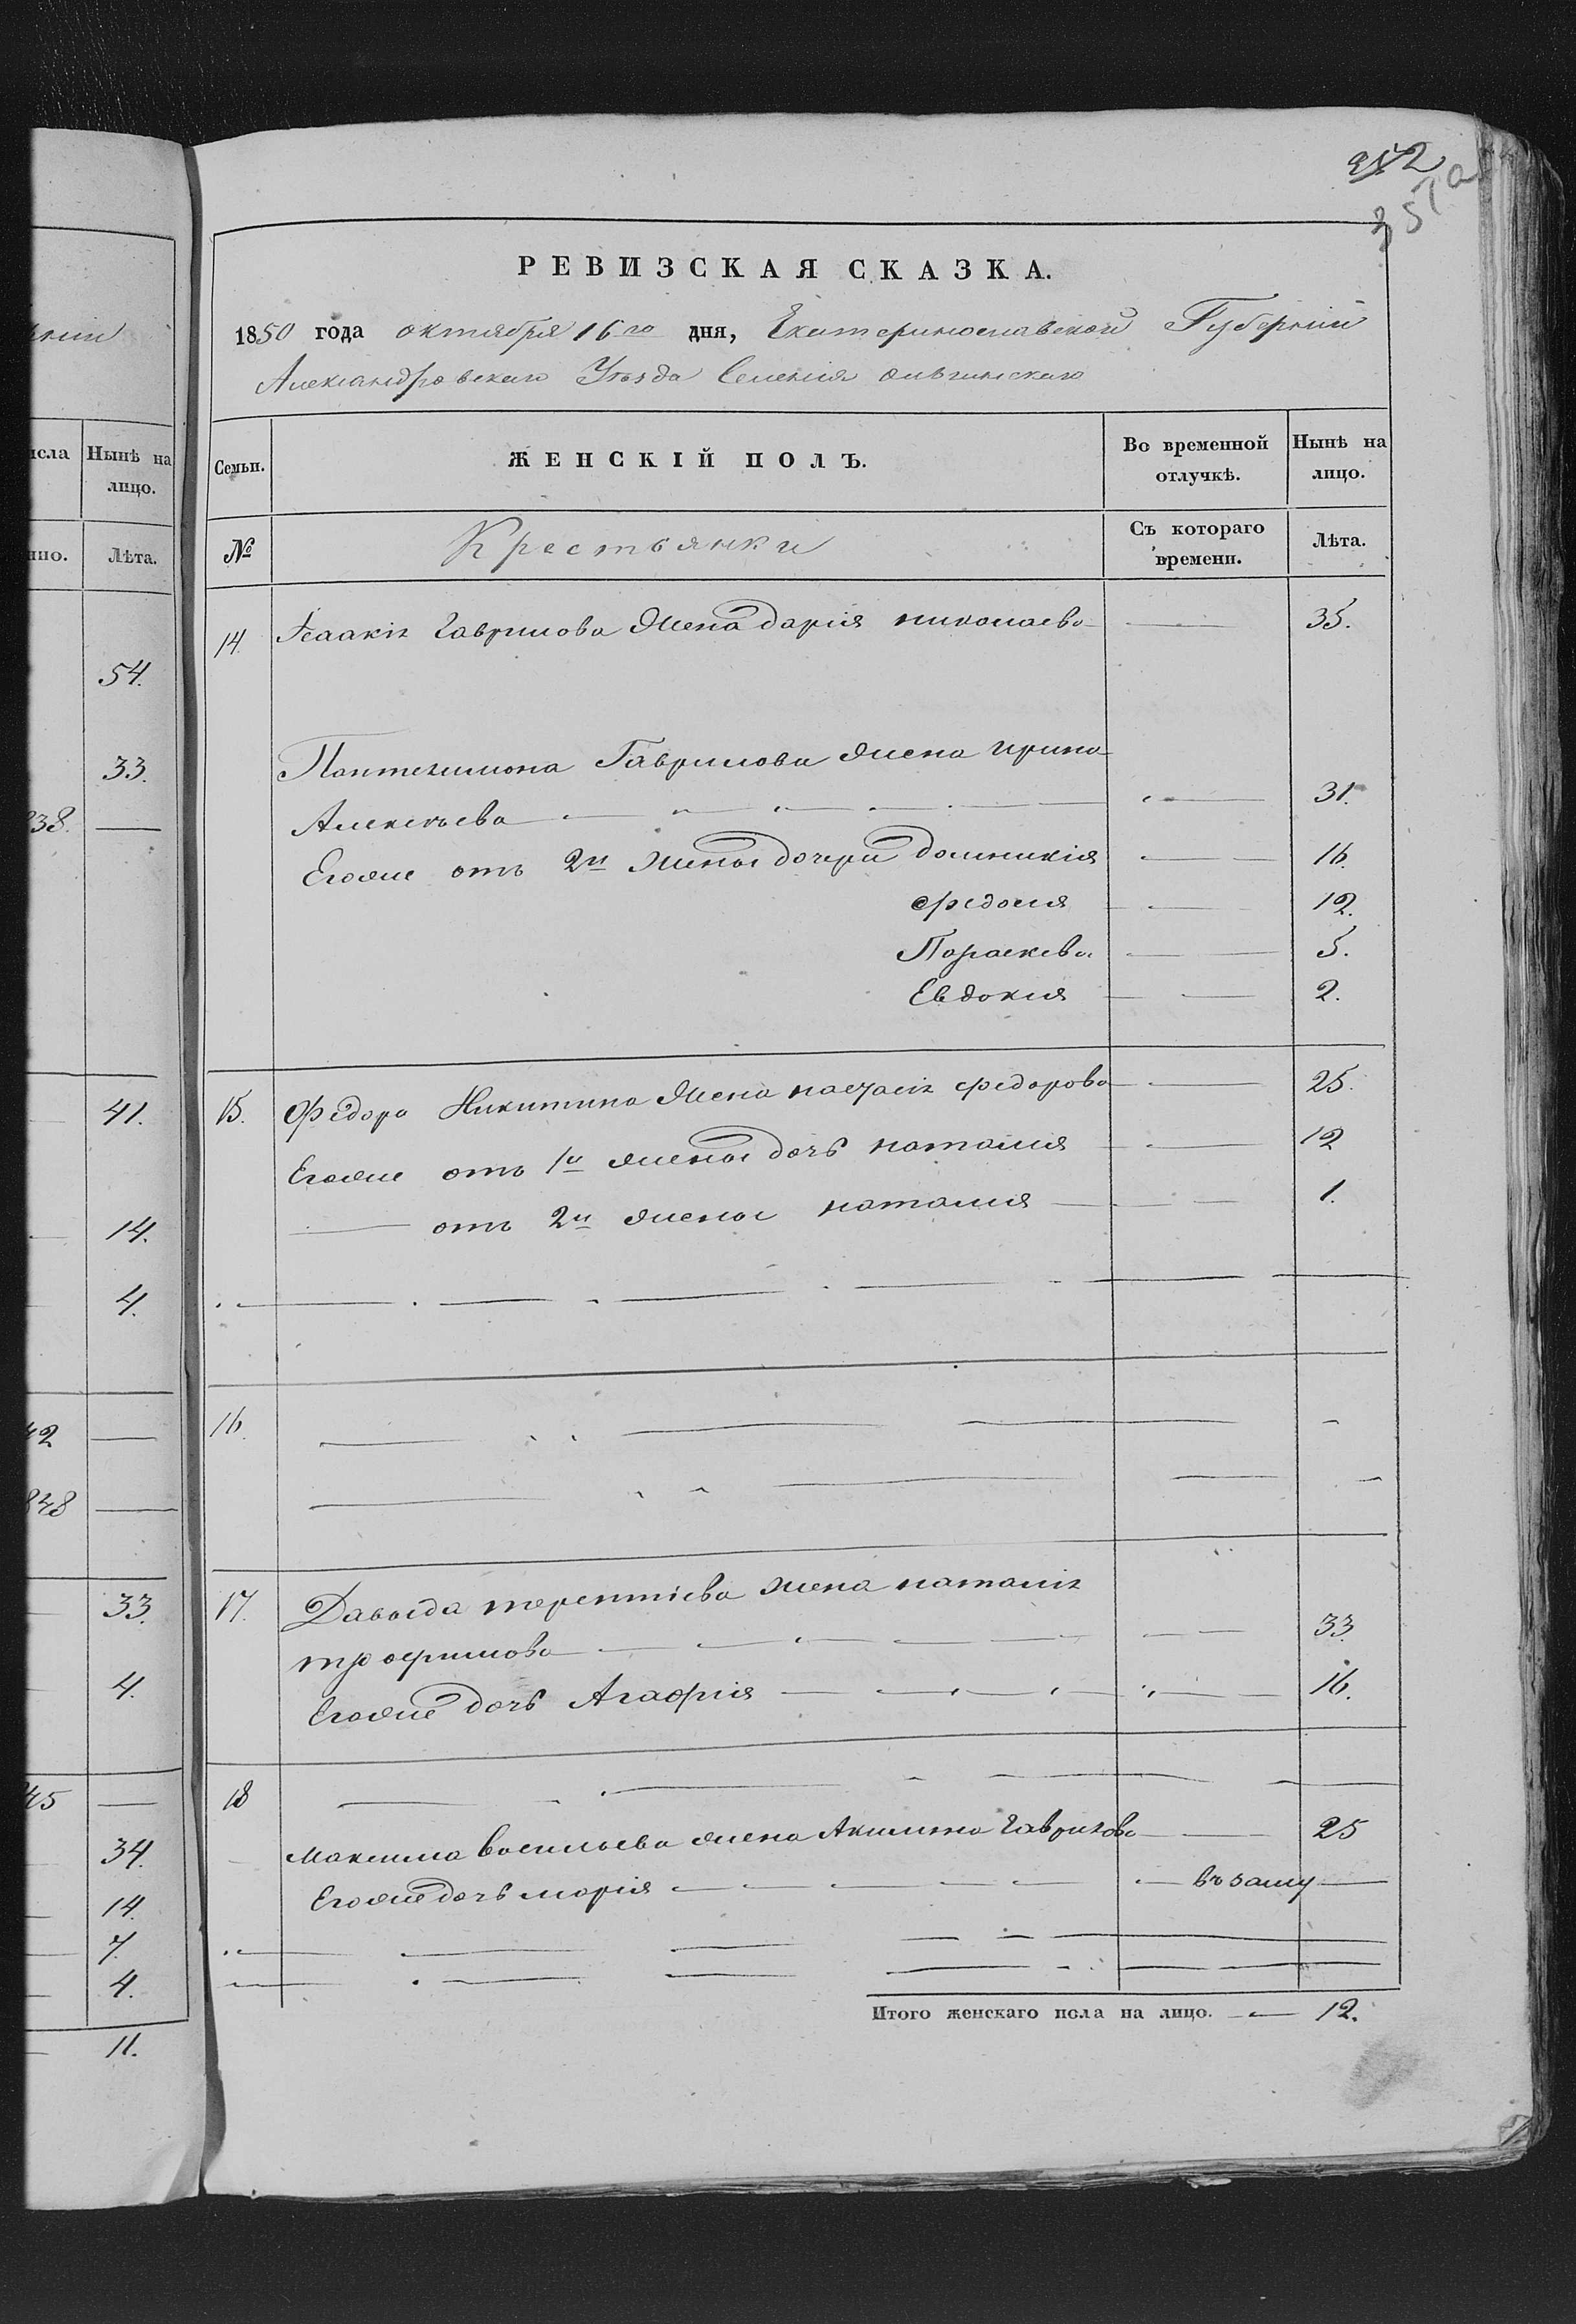 рніи
исла Нынѣ на
лицо.
нно. Лѣта.
54.
33.
838. —
41.
14.
4.
42 —
848 —
33.
4.
45 —
34.
14.
7.
4.
11.
352
351а
РЕВИЗСКАЯ СКАЗКА.
1850 года октября 16го дня, Екатеринославской Губерніи
Александровскаго Уѣзда Селенія Ольгинскаго
Семьи. ЖЕНСКІЙ ПОЛЪ. Во временной отлучкѣ. Нынѣ на лицо.
№ Крестьянки Съ котораго времени. Лѣта.
14. Исаакія Гаврилова жена дарія николаева — 35.
Пантелимона Гаврилова жена ирина
Алексѣева — 31.
Егоже отъ 2й жены дочери домникія — 16.
федосія — 12.
Параскева — 5.
Евдокия — 2.
15. Федора Никитина жена настасія федорова — 25.
Егоже отъ 1й жены дочь наталия — 12
— отъ 2й жены наталия — 1.
16. — — -
— — -
17. Давыда терентіева жена наталія
трофимова — 33.
Егоже дочь Агафія — 16.
18 —
Максима васильева жена Акилина Гаврилова — 25
Егоже дочь марія — въ замуж 
Итого женскаго пола на лицо. — 12.